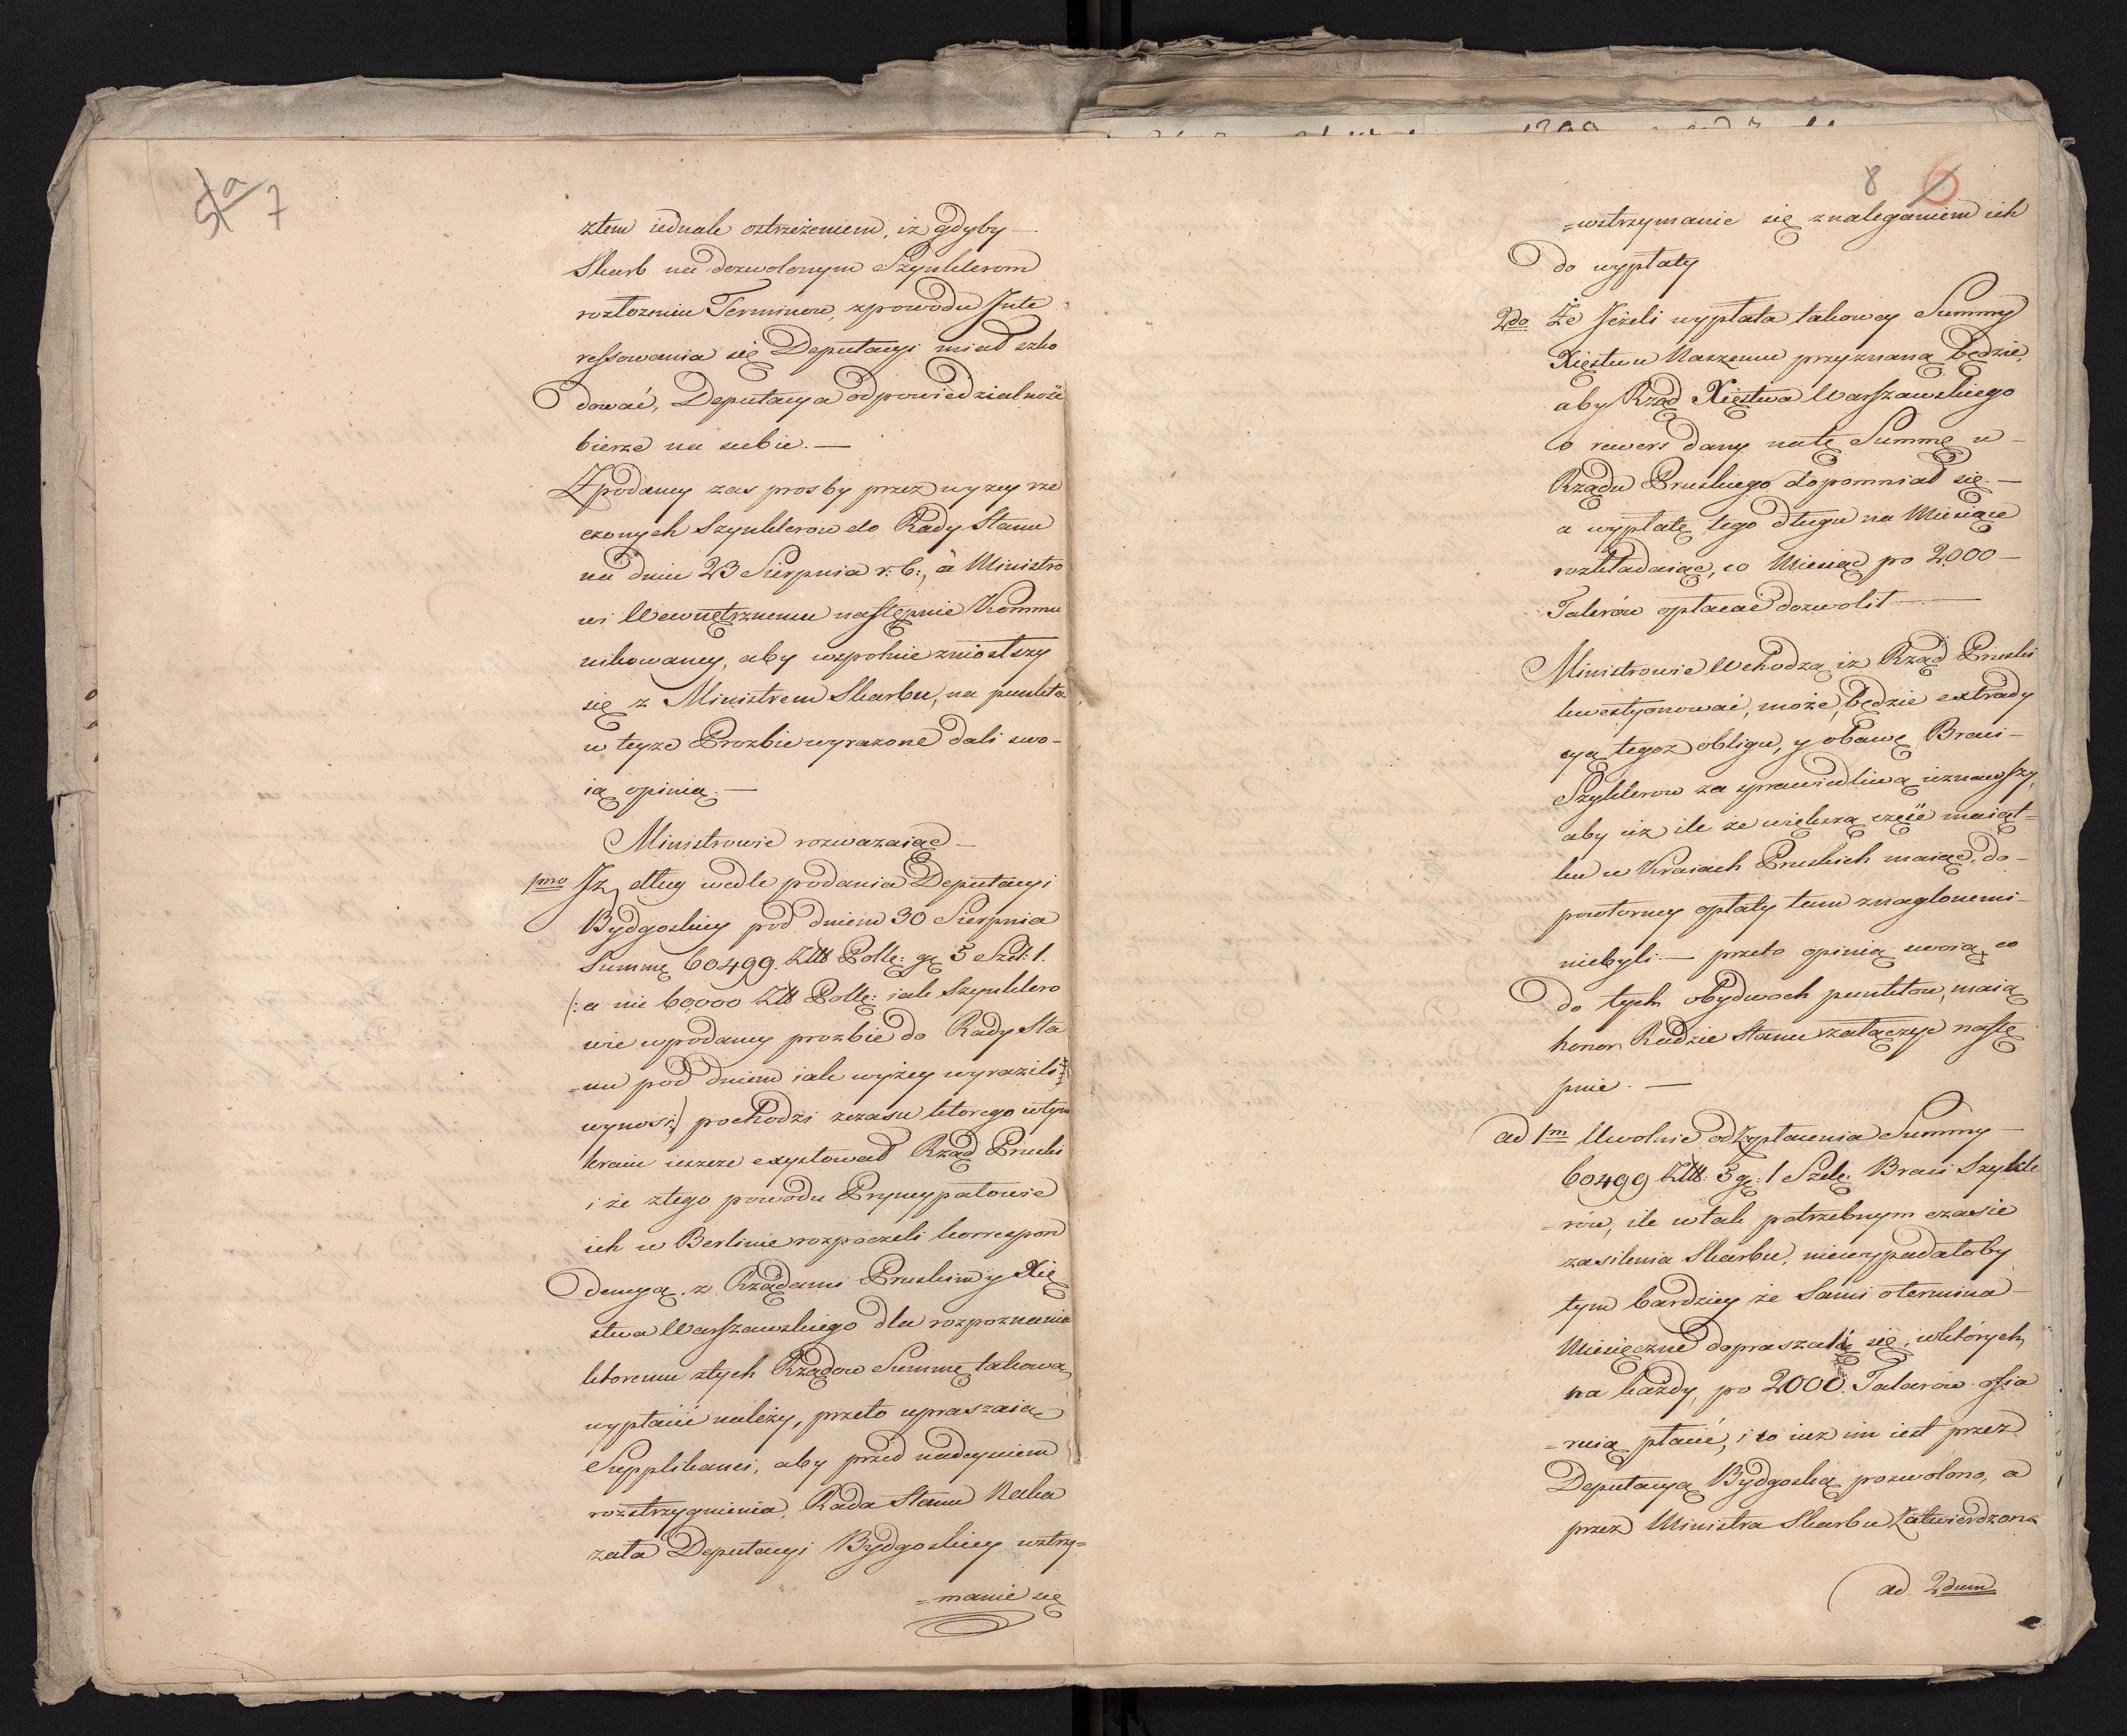 5a 7
ztem iednak ostrzeżeniem, iż gdyby —
Skarb na dozwolonym Szynklerom
rozłożeniu Terminow, zpowodu Inte
ressowania się Deputacyi miał szko
dować, Deputacya odpowiedzialność
bierze na siebie. —
Z podaney zas prosby przez wyzey rze
czonych Szynklerow do Rady Stanu
na dniu 23 Sierpnia r: b:, a Ministro
wi Wewnętrznemu następnie Kommu
nikowaney, aby wspolnie zniosłszy
się z Ministrem Skarbu, na punkta
w teyże Prozbie wyrazone dali swo-
ią opinią. —
Ministrowie rozwazaiąc —
1mo Iż dług wedle podania Deputacyi
Bydgoskiey pod dniem 30 Sierpnia
Summę 60499. Złł Polls: gs 3 Szel: 1.
(: a nie 60,000 Złł Polls: iak Szynklero
wie w podaney prozbie do Rady Sta
=nu pod dniem iak wyżey wyrazili
wynosi:) pochodzi zczasu ktorego wtym
kraiu ieszcze exystował Rząd Pruski
i że ztego powodu Pryncypałowie
ich w Berlinie rozpoczeli korrespon
dencyą z Rządami Pruskim y Xię
stwa Warszawskiego dla rozpoznania
ktoremu ztych Rządow Summę takową
wypłacić należy, przeto upraszaią
Supplikanci, aby przed nadeyściem
rozstrzygnienia, Rada Stanu Naka
zała Deputacyi Bydgoskiey wstrzy=
=manie się
8 6
=wstrzymanie się znaleganiem ich
do wypłaty
2do Że Jeżeli wypłata takowey Summy
Xięstwu Naszemu przyznaną będzie
aby Rząd Xięstwa Warszawskiego
o rewers dany natę Summę u —
Rządu Pruskiego dopomniał się. —
a wypłatę tego długu na Miesiące
rozkładaiąc, co Miesiąc po 2000 —
Talerów opłacać dozwolił —
Ministrowie Wchodzą iż Rząd Pruski
kwestyonować, może, będzie extrady
cyą tegoz obligu, y obawę Braci —
Szyklerow za sprawiedliwą uznawszy,
aby iż ile że większą część maiąt=
ku w Kraiach Pruskich maiąc, do-
powtorney opłaty temu znaglonemi —
niebyli. — przeto opinią swoią co
do tych obydwoch punktow, maią
honor Radzie Stanu załączyć nastę
pnie. —
ad 1m Uwolnić od Zypłacenia Summy —
60499 Złł: 3 gs: 1 Szelg: Braci Szykle
=rów, ile wtak potrzebnym czasie
zasilenia Skarbu, niewypadałoby
tym bardziey że Sami o termina —
Miesięczne dopraszali się, wktórych
na każdy, po 2000. Talarow ofia
=ruią płacić, i to iuz im iest przez
Deputacyą Bydgoską pozwolono, a
przez Ministra Skarbu Zatwierdzone
ad 2dum